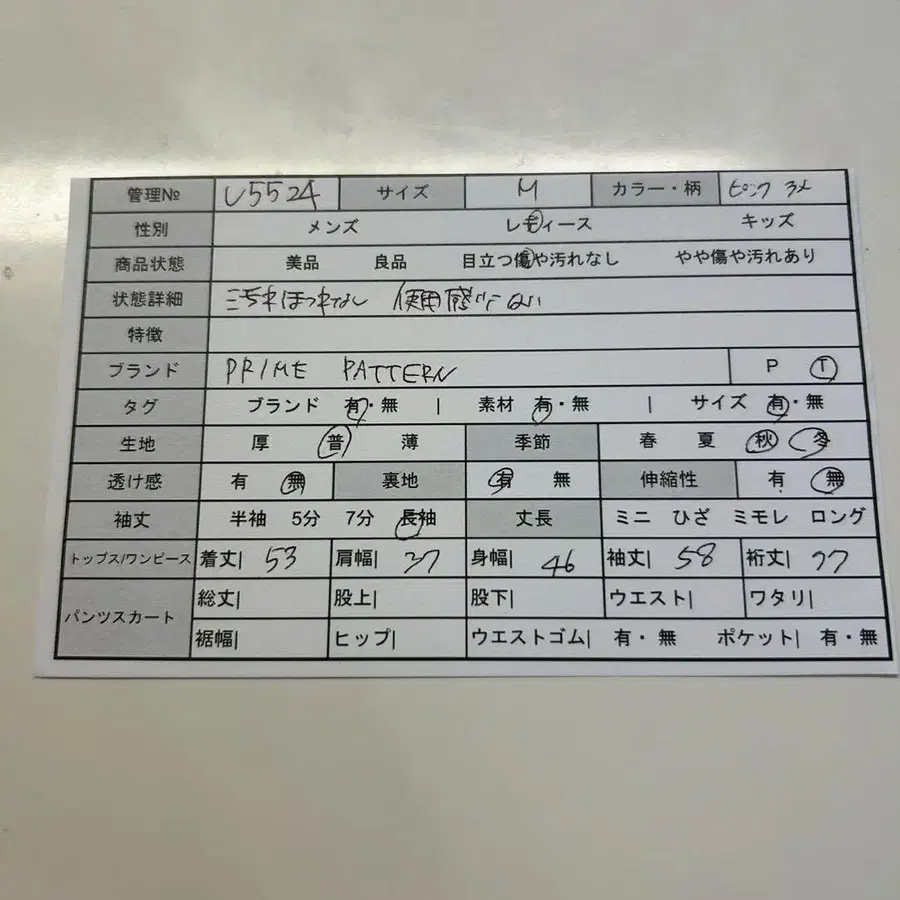 管理№ U5524 サイズ M カラー・柄 ピンク
性別 メンズ レディース キッズ
商品状態 美品 良品 目立つ傷や汚れなし やや傷や汚れあり
状態詳細 汚れほつれなし 使用感
特徴
ブランド PRIME PATTERN P T
タグ ブランド 有・無 | 素材 有・無 | サイズ 有・無
生地 厚 普 薄 季節 春 夏 秋 冬
透け感 有 無 裏地 有 無 伸縮性 有 無
袖丈 半袖 5分 7分 長袖 丈長 ミニ ひざ ミモレ ロング
トップス/ワンピース 着丈| 53 肩幅| 37 身幅| 46 袖丈| 58 裄丈| 77
パンツスカート 総丈| 股上| 股下| ウエスト| ワタリ|
裾幅| ヒップ| ウエストゴム| 有・無 ポケット| 有・無